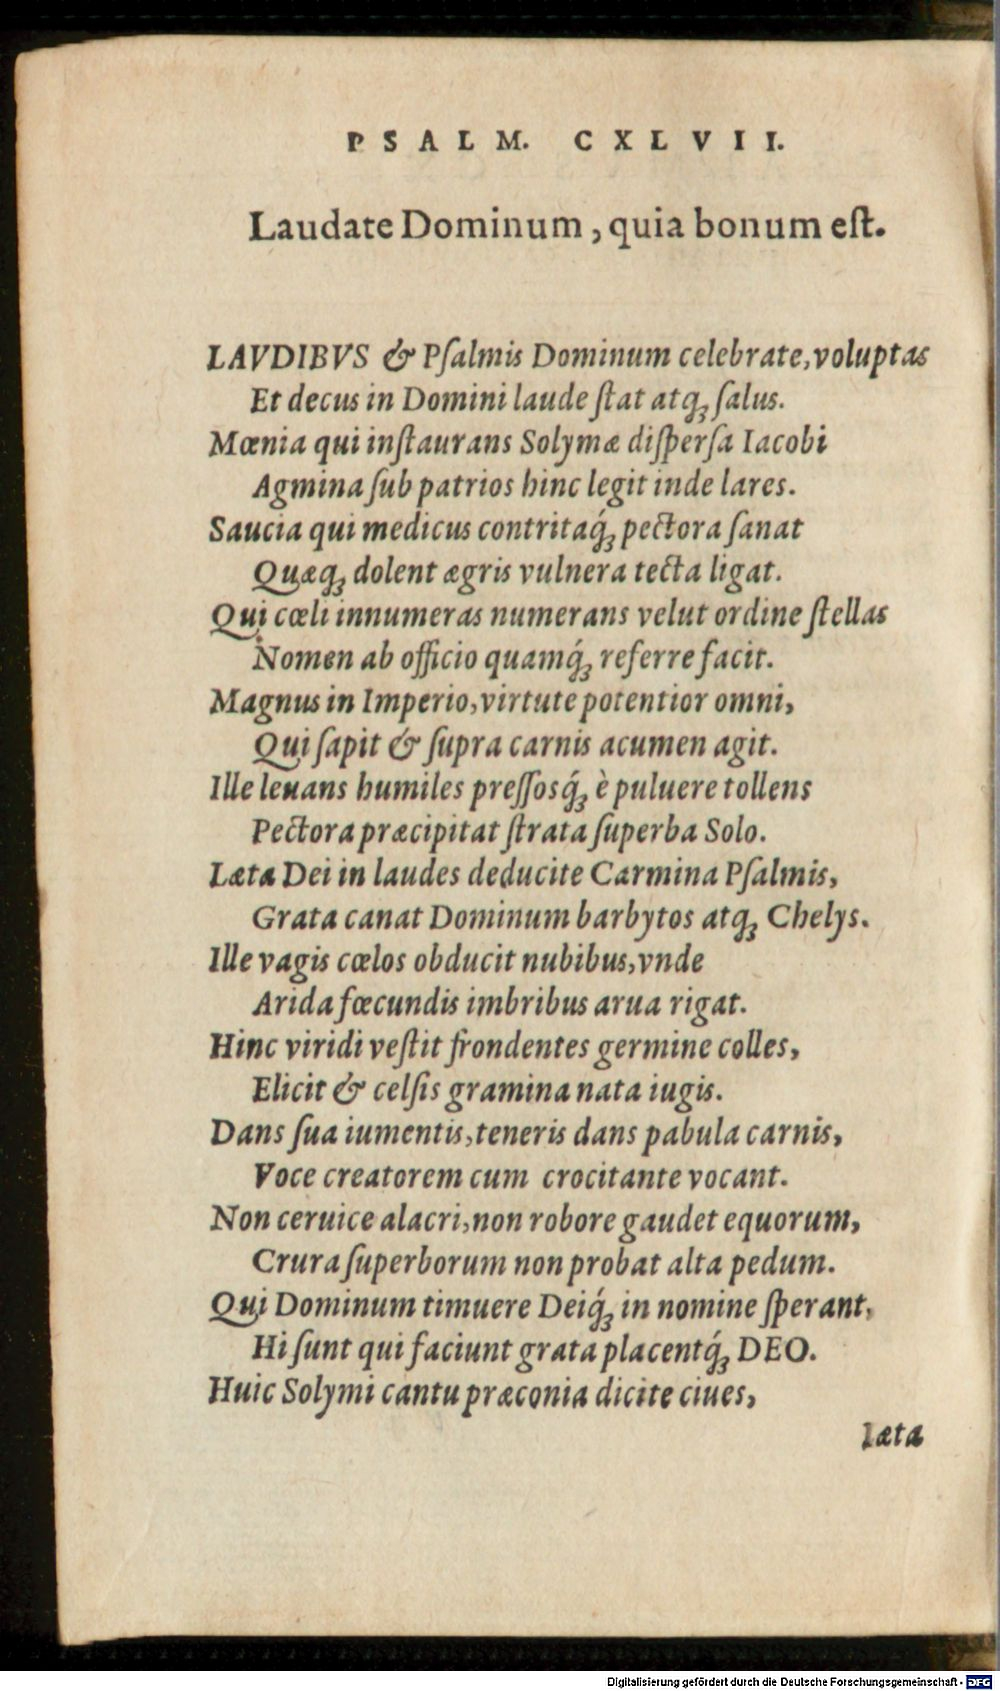 PSALM. CXLVII.
Laudate Dominum, quia bonum eſt.
LAVDIBVS & Pſalmis Dominum celebrate, voluptas
Et decus in Domini laude ſtat atq́ꝫ ſalus.
Mœnia qui inſtaurans Solymæ diſperſa Iacobi
Agmina ſub patrios hinc legit inde lares.
Saucia qui medicus contritaq́ꝫ pectora ſanat
Quæqꝫ dolent ægris vulnera tecta ligat.
Qui cœli innumeras numerans velut ordine ſtellas
Nomen ab officio quamq́ꝫ referre facit.
Magnus in Imperio, virtute potentior omni,
Qui ſapit & ſupra carnis acumen agit.
Ille leuans humiles preſſosq́ꝫ è puluere tollens
Pectora præcipitat ſtrata ſuperba Solo.
Læta Dei in laudes deducite Carmina Pſalmis,
Grata canat Dominum barbytos atqꝫ Chelys.
Ille vagis cœlos obducit nubibus, vnde
Arida fœcundis imbribus arua rigat.
Hinc viridi veſtit frondentes germine colles,
Elicit & celſis gramina nata iugis.
Dans ſua iumentis, teneris dans pabula carnis,
Voce creatorem cum crocitante vocant.
Non ceruice alacri, non robore gaudet equorum,
Crura ſuperborum non probat alta pedum.
Qui Dominum timuere Deiq́ꝫ in nomine ſperant,
Hi ſunt qui faciunt grata placentq́ꝫ DEO.
Huic Solymi cantu præconia dicite ciues,
læta
Digitalisierung gefördert durch die Deutsche Forschungsgemeinschaft - DFG